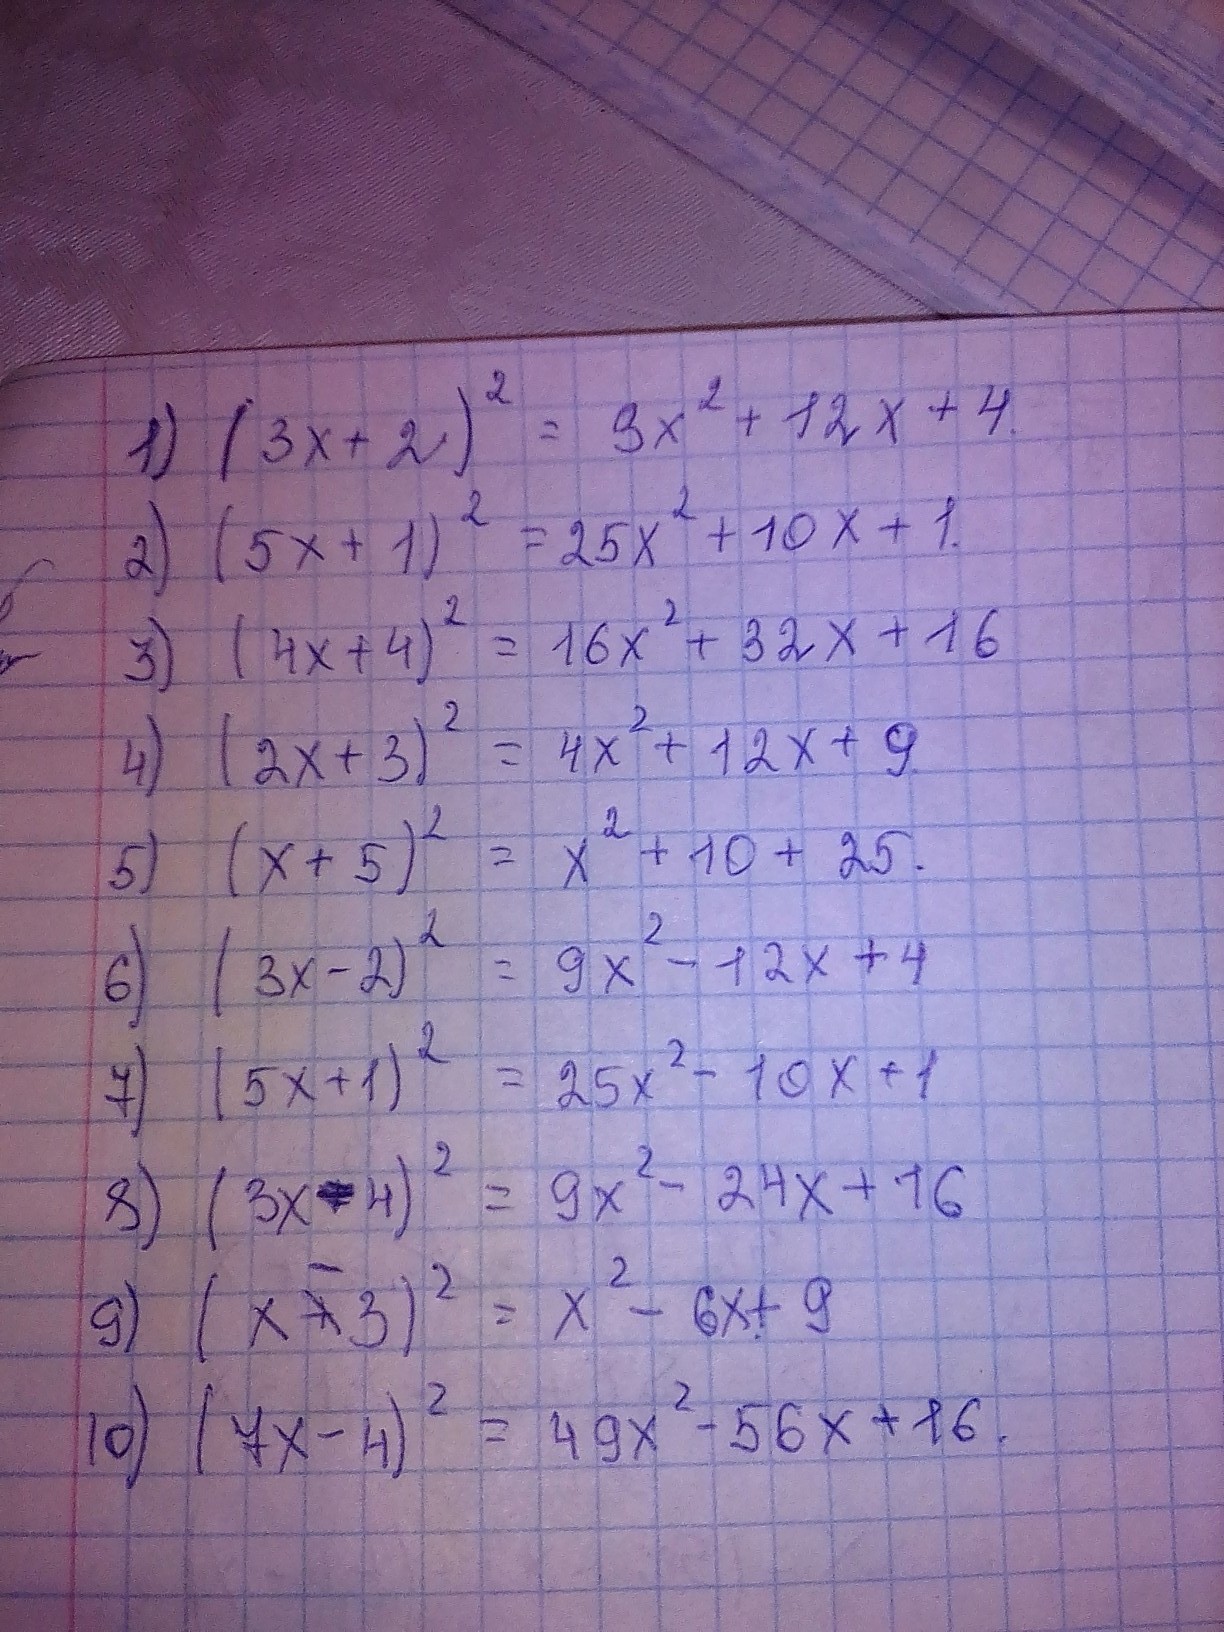 1) (3x+2)² = 9x²+12x+4.
2) (5x+1)² =25x²+10x+1.
3) (4x+4)² = 16x²+32x+16
4) (2x+3)² = 4x²+12x+9
5) (x+5)² = x²+10+25.
6) (3x-2)² = 9x²-12x+4
7) (5x+1)² = 25x²-10x+1
8) (3x-4)² = 9x²-24x+16
9) (x-3)² = x²-6x+9
10) (7x-4)² = 49x²-56x+16.